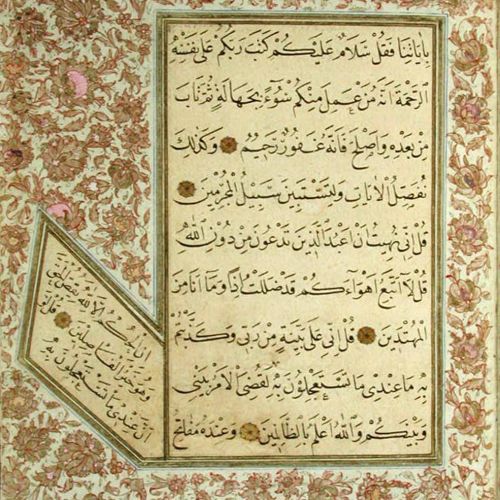 بِآيَاتِنَا فَقُلْ سَلَامٌ عَلَيْكُمْ كَتَبَ رَبُّكُمْ عَلَى نَفْسِهِ
الرَّحْمَةَ اَنَّهُ مَنْ عَمِلَ مِنْكُمْ سُوءً بِجَهَالَةٍ ثُمَّ تَابَ
مِنْ بَعْدِهِ وَاَصْلَحَ فَاَنَّهُ غَفُورٌ رَحِيمٌ وَكَذٰلِكَ
نُفَصِّلُ الْاٰيَاتِ وَلِتَسْتَبِينَ سَبِيلُ الْمُجْرِمِينَ
قُلْ اِنِّي نُهِيتُ اَنْ اَعْبُدَ الَّذِينَ تَدْعُونَ مِنْ دُونِ اللّٰهِ
قُلْ لَا اَتَّبِعُ اَهْوَاءَكُمْ قَدْ ضَلَلْتُ اِذًا وَمَا اَنَا مِنَ
الْمُهْتَدِينَ قُلْ اِنِّي عَلَى بَيِّنَةٍ مِنْ رَبِّي وَكَذَّبْتُمْ
بِهِ مَا عِنْدِي مَا تَسْتَعْجِلُونَ بِهِ لَقُضِيَ الْاَمْرُ بَيْنِي
وَبَيْنَكُمْ وَاللّٰهُ اَعْلَمُ بِالظَّالِمِينَ وَعِنْدَهُ مَفَاتِحُ
اِنِ الْحُكْمُ اِلَّا لِلّٰهِ يَقُصُّ الْحَقَّ
وَهُوَ خَيْرُ الْفَاصِلِينَ قُلْ لَوْ
اَنَّ عِنْدِي مَا تَسْتَعْجِلُونَ بِهِ